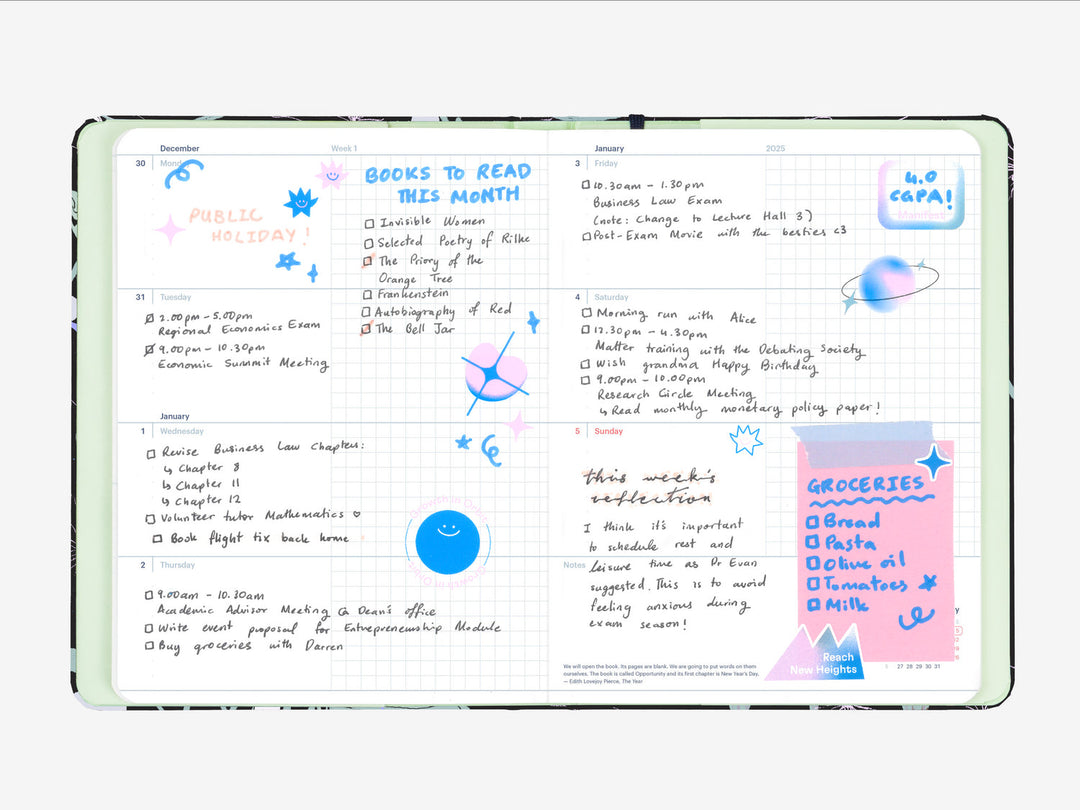 December
Week 1
30
Mond
PUBLIC
HOLIDAY!
BOOKS TO READ
THIS MONTH
Invisible Women
Selected Poetry of Rilke
The Priory of the
Orange Tree
Frankenstein
Autobiography of Red
The Bell Jar
31 Tuesday
2.00pm - 5.00pm
Regional Economics Exam
9.00pm - 10.30pm
Economic Summit Meeting
January
1 Wednesday
Revise Business Law Chapters:
↳ Chapter 8
↳ Chapter 11
↳ Chapter 12
Volunteer tutor Mathematics ♡
Book flight tix back home
Growth in Orbit
Growth in Orbit
2 Thursday
9.00am - 10.30am
Academic Advisor Meeting @ Dean's office
Write event proposal for Entrepreneurship Module
Buy groceries with Darren
January
2025
3 Friday
10.30am - 1.30pm
Business Law Exam
(note: Change to Lecture Hall 3)
Post-Exam Movie with the besties <3
4.0
CGPA!
Manifest
4 Saturday
Morning run with Alice
12.30pm - 4.30pm
Matter training with the Debating Society
Wish grandma Happy Birthday
9.00pm - 10.00pm
Research Circle Meeting
↳ Read monthly monetary policy paper!
5 Sunday
this week's
reflection
I think it's important
to schedule rest and
Notes
leisure time as Dr Evan
suggested. This is to avoid
feeling anxious during
exam season!
GROCERIES
Bread
Pasta
Olive oil
Tomatoes
Milk
Reach
New Heights
27 28 29 30 31
We will open the book. Its pages are blank. We are going to put words on them
ourselves. The book is called Opportunity and its first chapter is New Year's Day.
— Edith Lovejoy Pierce, The Year